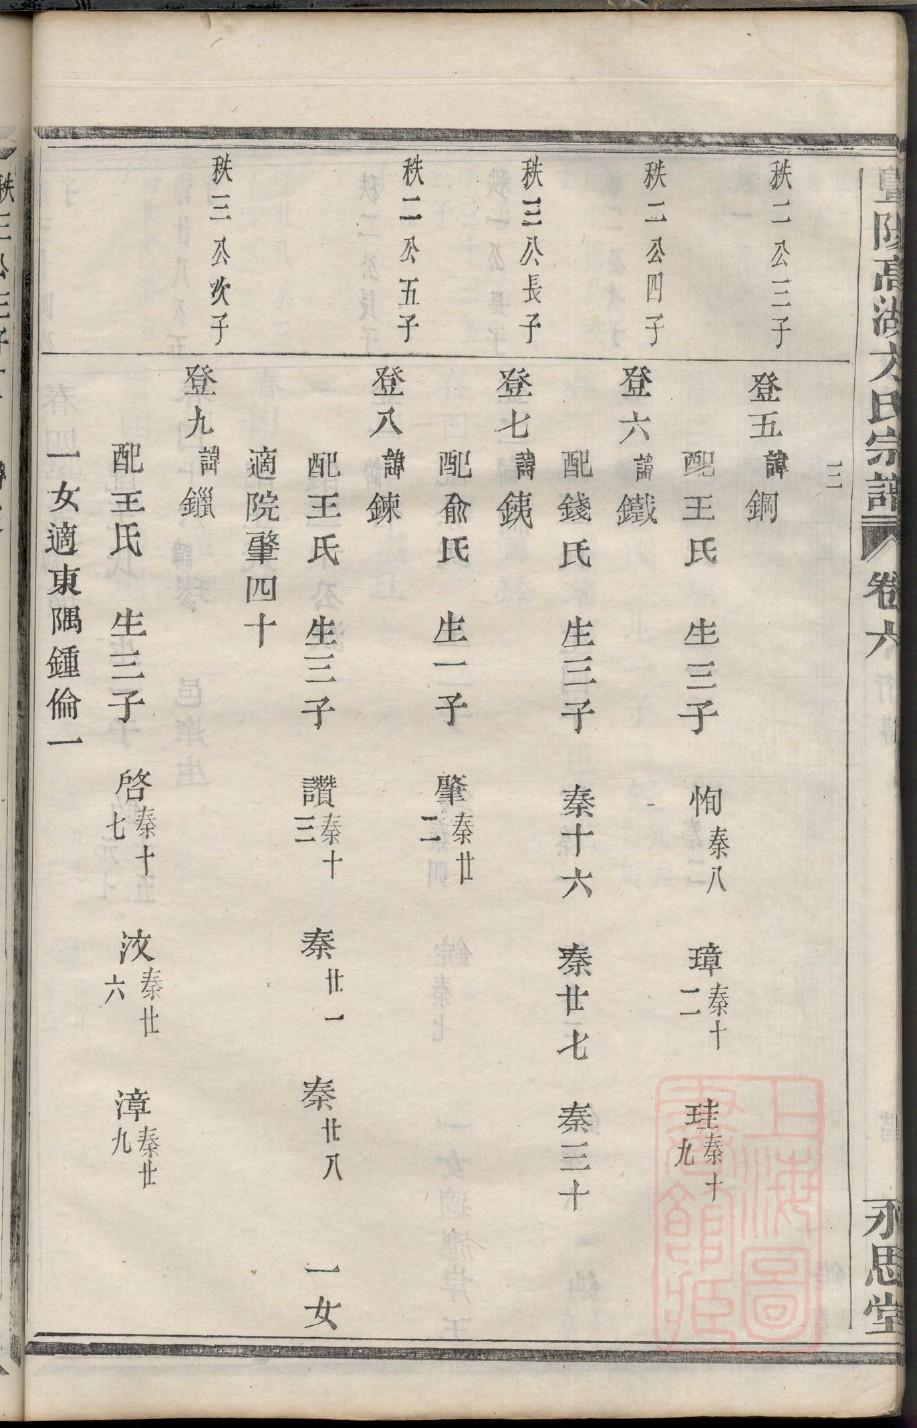 暨陽高湖大氏宗譜 卷六 永思堂
三
秩二公三子
登五諱鋼
配王氏 生三子 恂秦八 璋秦十二 珪秦十九
秩二公四子
登六諱鐵
配錢氏 生三子 秦十六 秦廿七 秦三十
秩三公長子
登七諱銕
配俞氏 生一子 肇秦廿二
秩二公五子
登八諱鍊
配王氏 生三子 讚秦十三 秦廿一 秦廿八 一女
適院肇四十
秩三公次子
登九諱鑞
配王氏 生三子 啓秦十七 汶秦廿六 漳秦廿九
一女適東隅鍾倫一
上海圖書館藏